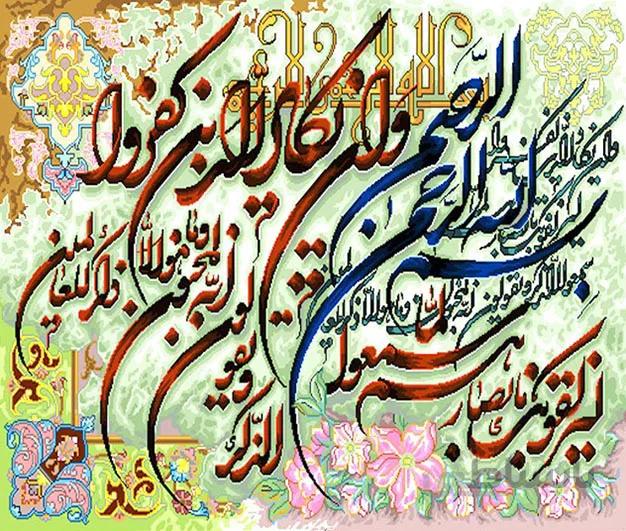 بسم الله الرحمن الرحیم
وان یکاد الذین کفروا
لیزلقونک بابصارهم لما سمعوا
الذکر ویقولون انه لمجنون
وما هو الا ذکر للعالمین
وان یکاد الذین کفروا
لیزلقونک بابصارهم لما
سمعوا الذکر ویقولون انه لمجنون وما هو الا ذکر للعالمین